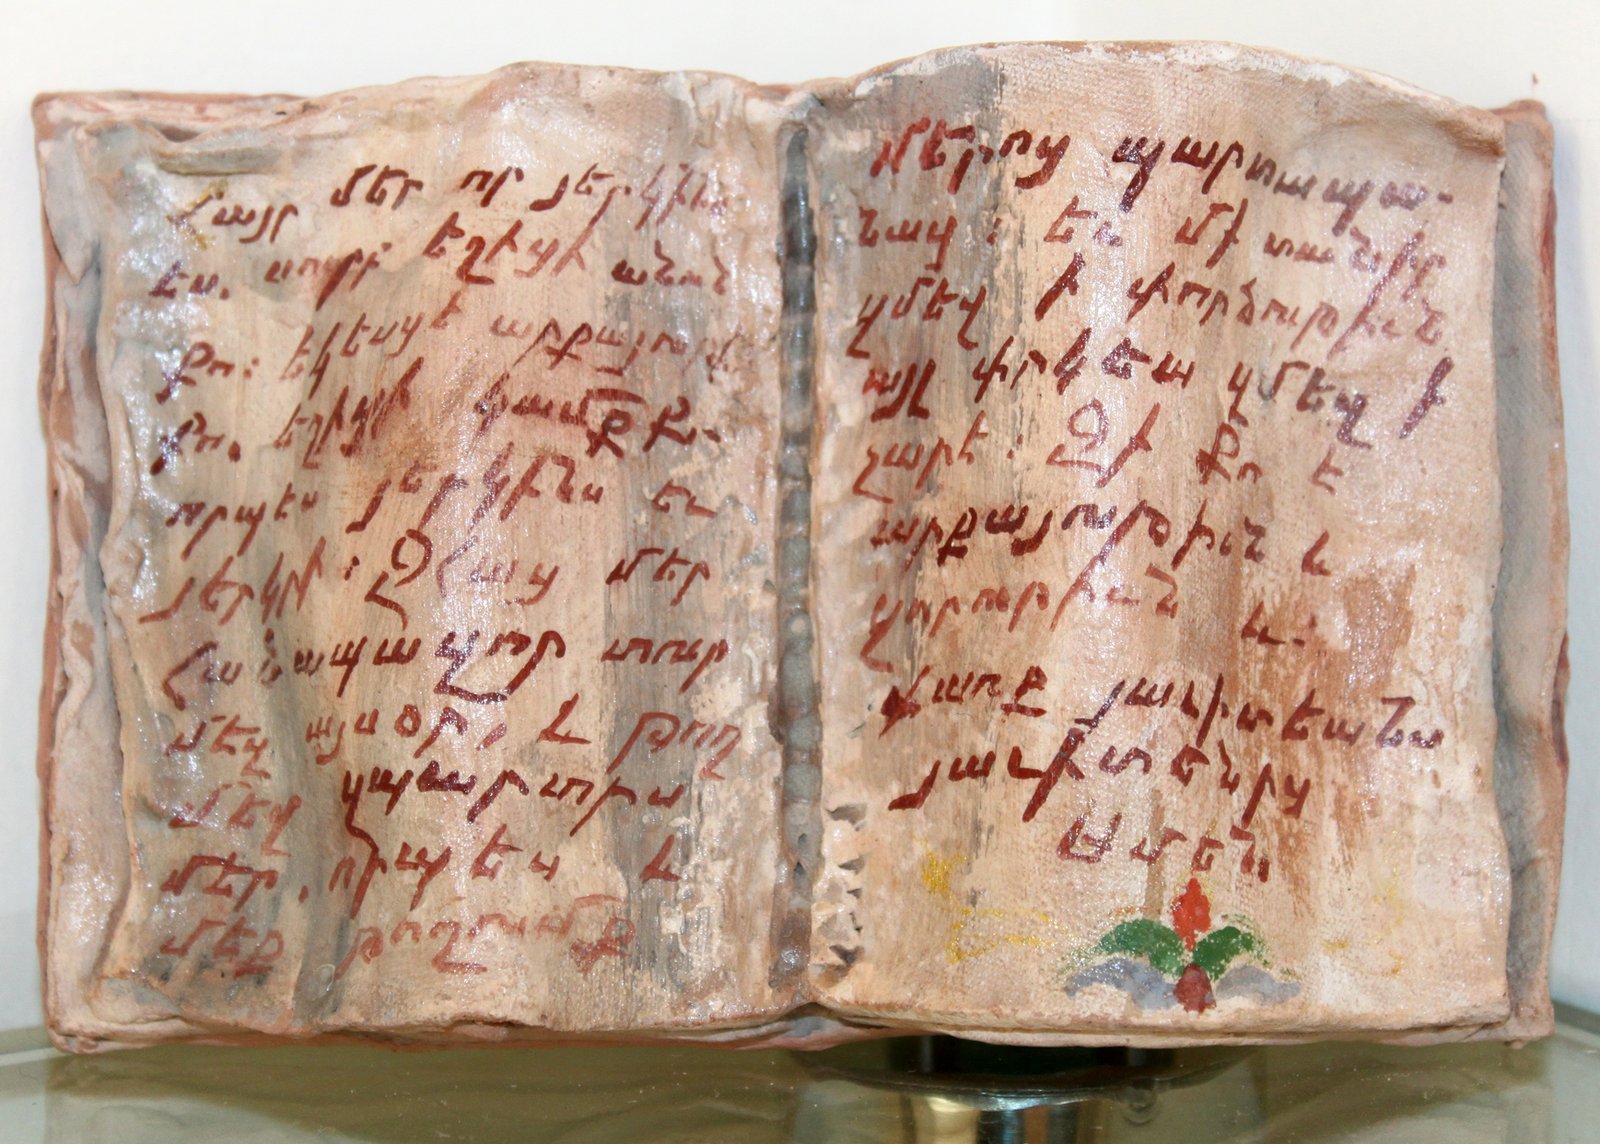 Հայր մեր որ յերկինս
ես, սուրբ եղիցի անուն
քո։ եկեսցէ արքայութի
քո, եղիցի կամք քո.
որպէս յերկինս եւ
յերկրի։ Զհաց մեր
հանապազոր տուր
մեզ այսօր, և թող
մեզ զպարտիս
մեր, որպէս և
մեք թողումք
մերոց պարտապա-
նաց։ եւ մի տանիր
զմեզ ի փորձութիւն
այլ փրկեա զմեզ ի
չարէ։ Զի քո է
արքայութիւն և
զօրութիւն և
փառք յաւիտեանս
յաւիտենից
Ամեն